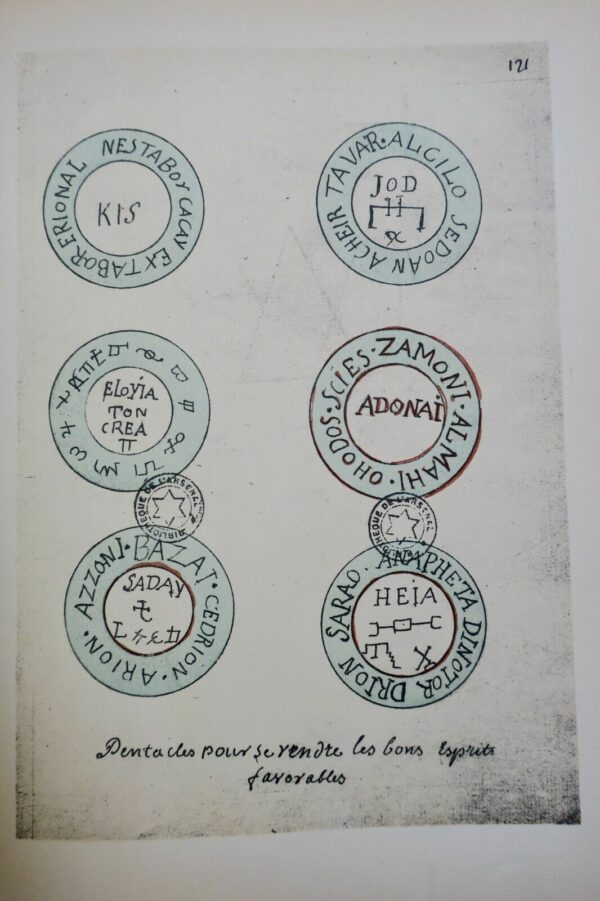 121
NESTABOY CACAY EXTABOR ERIONAL
KIS
TAVAR · ALCILO SEDOAN ACHEIR
JOD
ELOYIA
TON
CREA
SCIES · ZAMONI · ALMAHI · OHODOS ·
ADONAI
BIBLIOTHEQUE DE L'ARSENAL
BIBLIOTHEQUE DE L'ARSENAL
AZZONI · BAZAT · CEDRION · ARION ·
SADAY
SARAO · ANAPHETA DINOTOR DRION
HEIA
Pentacles pour se rendre les bons Esprits
favorables